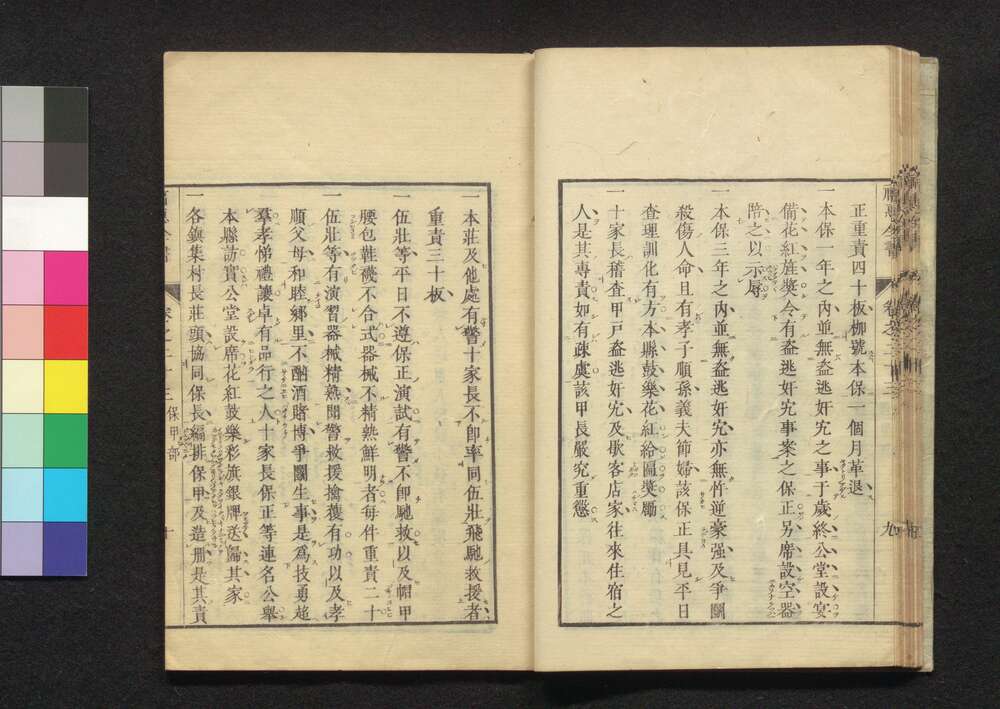 福惠全書 卷之二十三 九
正重責四十板枷號本保一個月革退
一本保一年之內並無盜逃奸宄之事于歲終公堂設宴
備花紅旌奬令有盜逃奸宄事案之保正另席設空器
陪之以示辱
一本保三年之內並無盜逃奸宄亦無忤逆豪强及爭鬭
殺傷人命且有孝子順孫義夫節婦該保正具見平日
查理訓化有方本縣鼓樂花紅給匾奬勵
一十家長稽查甲戸盜逃奸宄及歇客店家往來住宿之
人是其專責如有疎虞該甲長嚴究重懲
一本莊及他處有警十家長不卽率同伍壯飛馳救援者
重責三十板
一伍壯等平日不遵保正演試有警不卽馳救以及帽甲
腰包鞋襪不合式器械不精熟鮮明者每件重責二十
一伍壯等有演習器械精熟聞警救援擒獲有功以及孝
順父母和睦鄉里不酗酒賭博爭鬭生事是爲技勇超
羣孝悌禮讓卓有品行之人十家長保正等連名公舉
本縣訪實公堂設席花紅鼓樂彩旗銀牌送歸其家
一各鎮集村長莊頭協同保長編排保甲及造册是其責
卷之二十三 保甲部 十